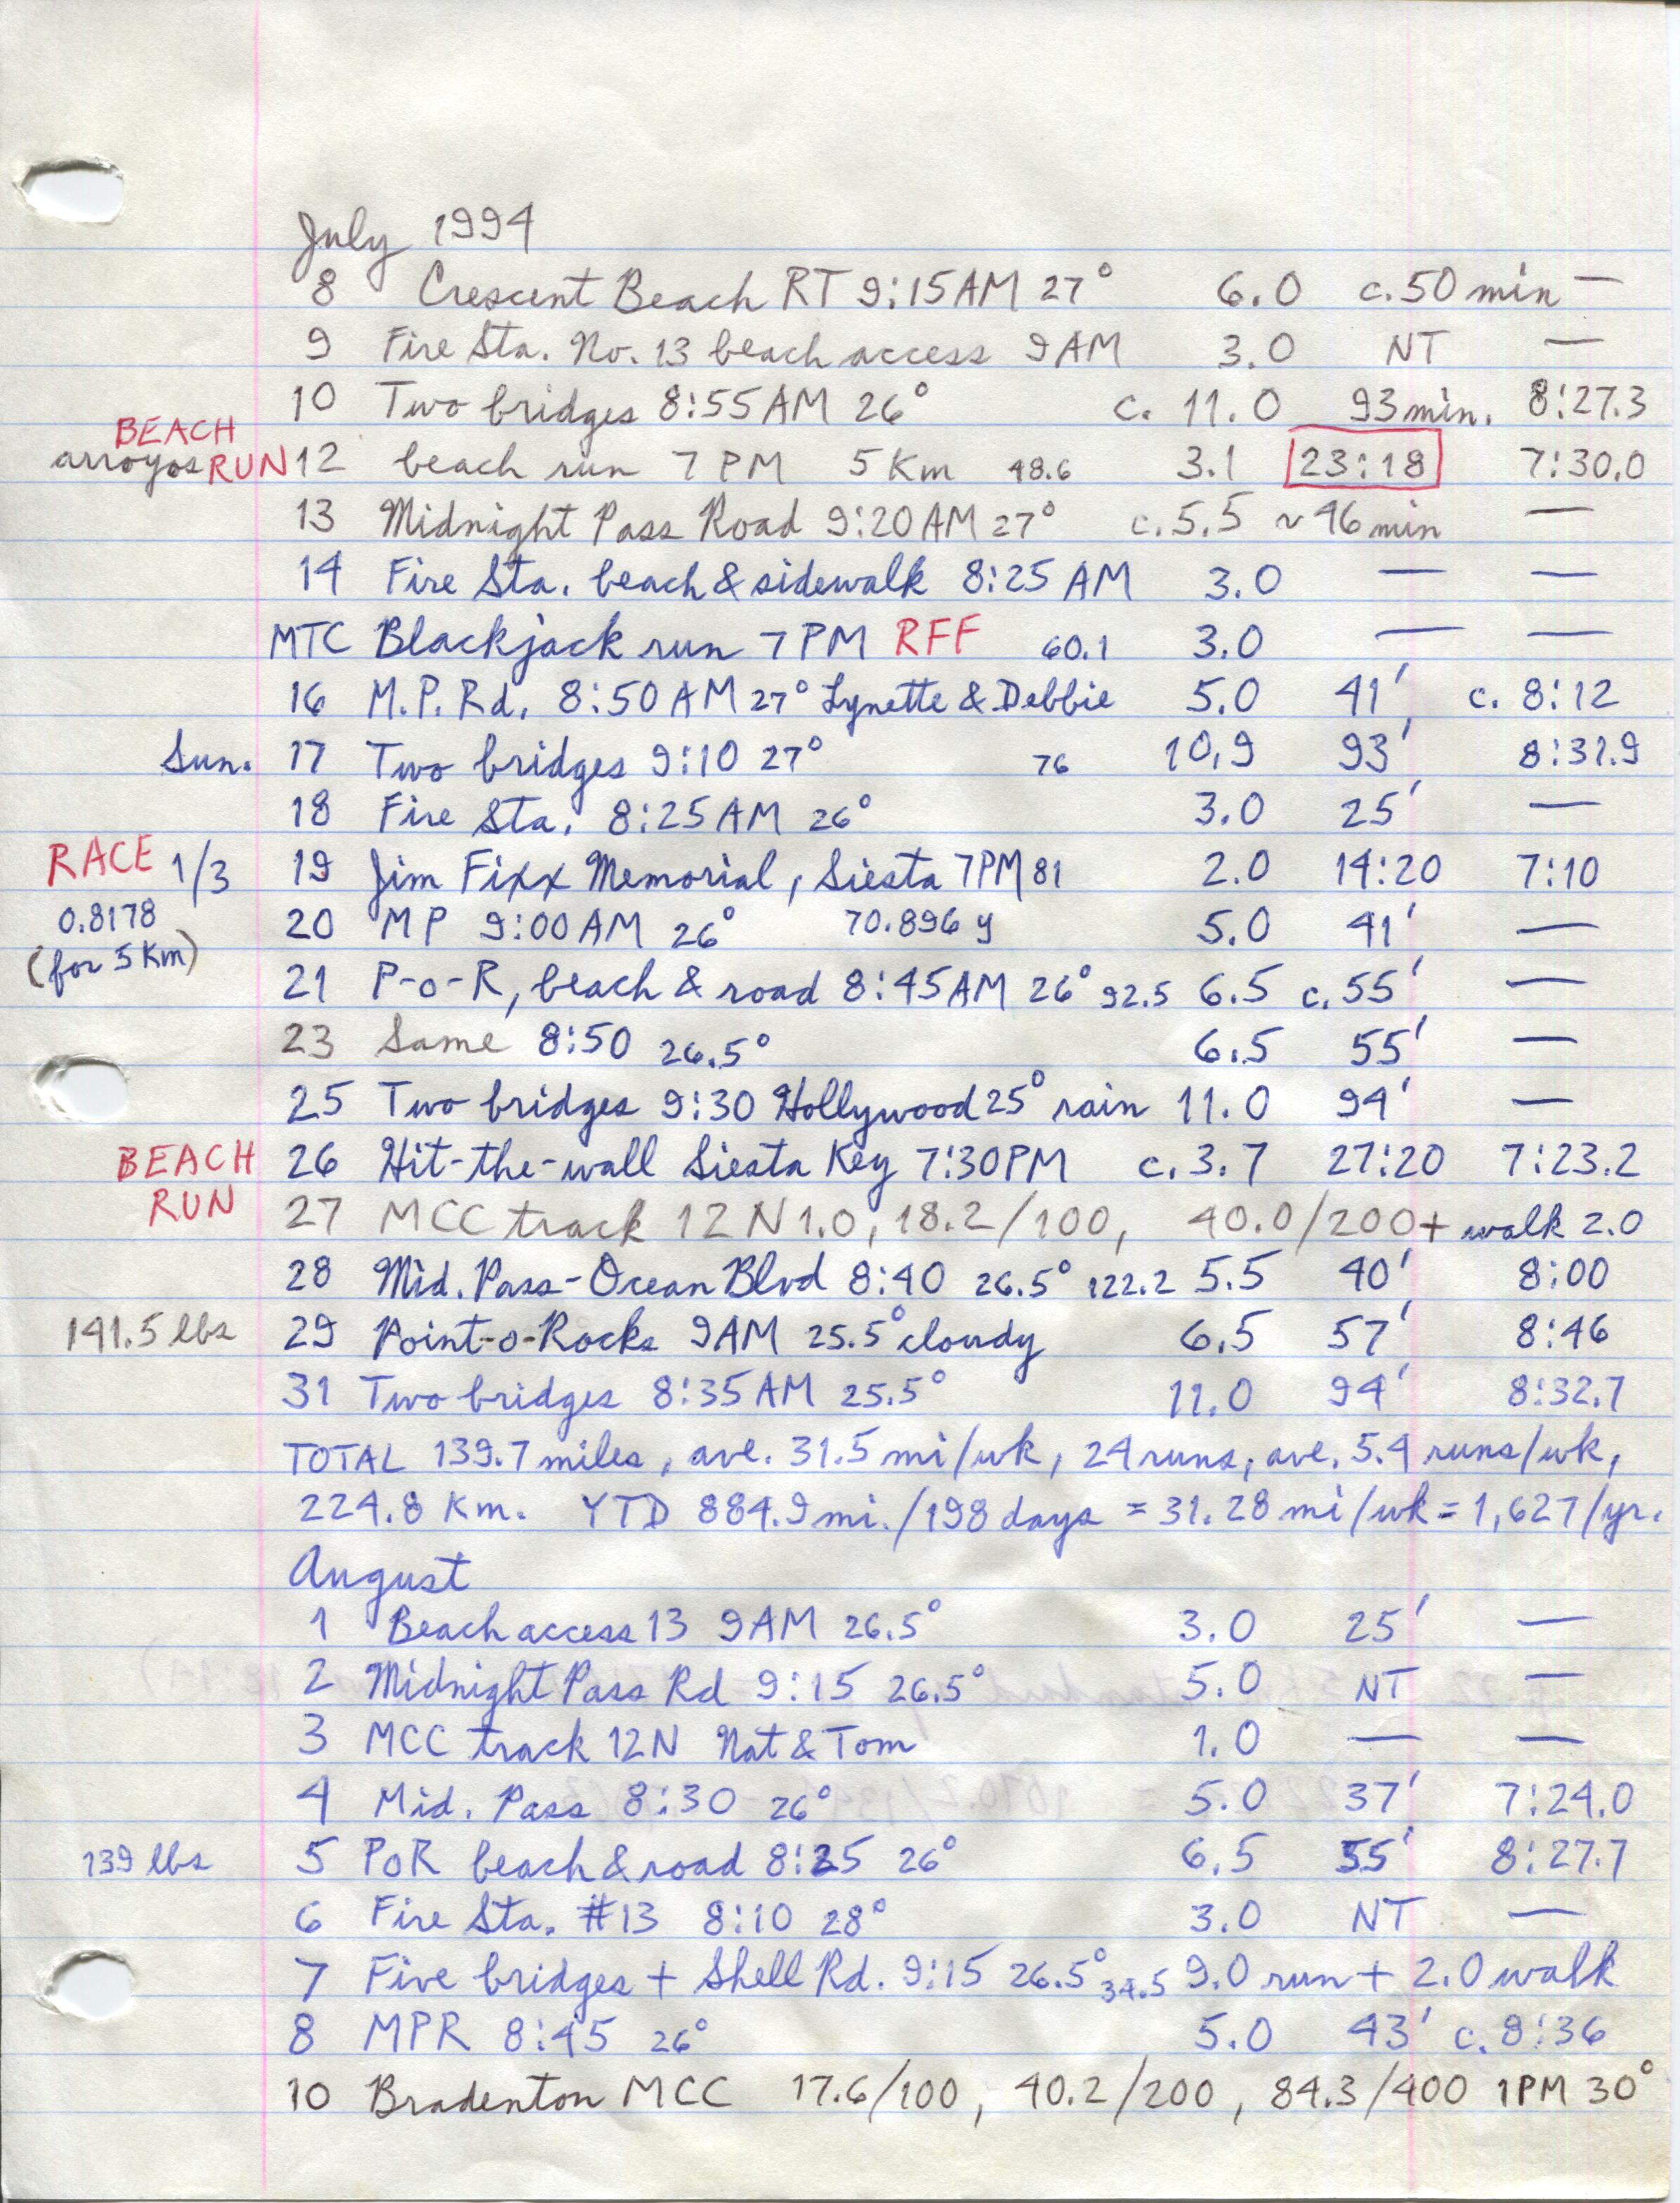 July 1994
8 Crescent Beach RT 9:15AM 27° 6.0 c.50 min —
9 Fire Sta. No. 13 beach access 9AM 3.0 NT —
10 Two bridges 8:55AM 26° c. 11.0 93min. 8:27.3
BEACH
arroyos RUN 12 beach run 7PM 5Km 48.6 3.1 23:18 7:30.0
13 Midnight Pass Road 9:20AM 27° c.5.5 ~46min —
14 Fire Sta. beach & sidewalk 8:25 AM 3.0 — —
MTC Blackjack run 7PM RFF 60.1 3.0 — —
16 M.P.Rd. 8:50AM 27° Lynette & Debbie 5.0 41' c. 8:12
Sun. 17 Two bridges 9:10 27° 76 10.9 93' 8:31.9
18 Fire Sta. 8:25AM 26° 3.0 25' —
RACE 1/3 19 Jim Fixx Memorial, Siesta 7PM 81 2.0 14:20 7:10
0.8178 20 MP 9:00AM 26° 70.896 y 5.0 41' —
(for 5Km) 21 P-o-R, beach & road 8:45AM 26° 92.5 6.5 c.55' —
23 Same 8:50 26.5° 6.5 55' —
25 Two bridges 9:30 Hollywood 25° rain 11.0 94' —
BEACH 26 Hit-the-wall Siesta Key 7:30PM c.3.7 27:20 7:23.2
RUN 27 MCC track 12N 1.0, 18.2/100, 40.0/200+ walk 2.0
28 Mid. Pass-Ocean Blvd 8:40 26.5° 122.2 5.5 40' 8:00
141.5 lbs 29 Point-o-Rocks 9AM 25.5° cloudy 6.5 57' 8:46
31 Two bridges 8:35AM 25.5° 11.0 94' 8:32.7
TOTAL 139.7 miles, ave. 31.5 mi/wk, 24 runs, ave. 5.4 runs/wk,
224.8 Km. YTD 884.9mi./198 days = 31.28 mi/wk = 1,627/yr.
August
1 Beach access 13 9AM 26.5° 3.0 25' —
2 Midnight Pass Rd 9:15 26.5° 5.0 NT —
3 MCC track 12N Nat & Tom 1.0 — —
4 Mid. Pass 8:30 26° 5.0 37' 7:24.0
139 lbs 5 PoR beach & road 8:25 26° 6.5 55' 8:27.7
6 Fire Sta. #13 8:10 28° 3.0 NT —
7 Five bridges + Shell Rd. 9:15 26.5° 34.5 9.0 run + 2.0 walk
8 MPR 8:45 26° 5.0 43' c. 8:36
10 Bradenton MCC 17.6/100, 40.2/200, 84.3/400 1PM 30°